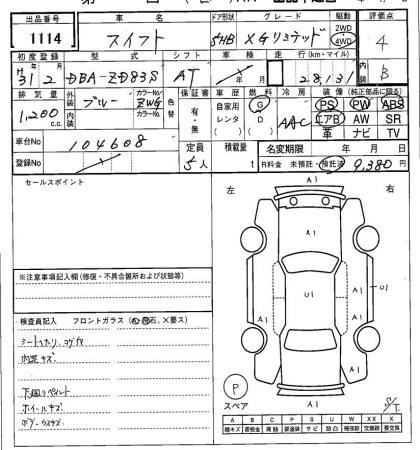 出品番号 車名 ドア形状 グレード 駆動 評価点
1114 スイフト 5HB XGリミテッド 2WD 4WD 4
初度登録 型式 シフト 車検 走行(km・マイル) 内装
H31年2月 DBA-ZD83S AT 年 月 28,131 B
排気量 外装 カラーNo. 色替 保証書 車歴 燃料 冷房 装備(純正部品に限る)
1,200 c.c. ブルー ZWG 有・無 自家用 レンタ G D AAC PS PW ABS
内装 カラーNo. エアB AW SR
革 ナビ TV
車台No 104608 定員 積載量 名変期限 年 月 日
登録No 5人 t R料金 未預託・預託済 9,380円
セールスポイント
左 右
A1
A1
U1
A1
A1
U1
A1
A1
A1
※注意事項記入欄(修復・不具合箇所および状態等)
検査員記入 フロントガラス(石、X要ス)
シートヘタリ、ヨゴレ
内装キズ
下回りペイント
ホイールキズ
P
スペア
S/T.
A B C P S U W X XX
線キズ 要板金 腐蝕 要塗装 サビ 凹凸 補修跡 交換跡 要交換